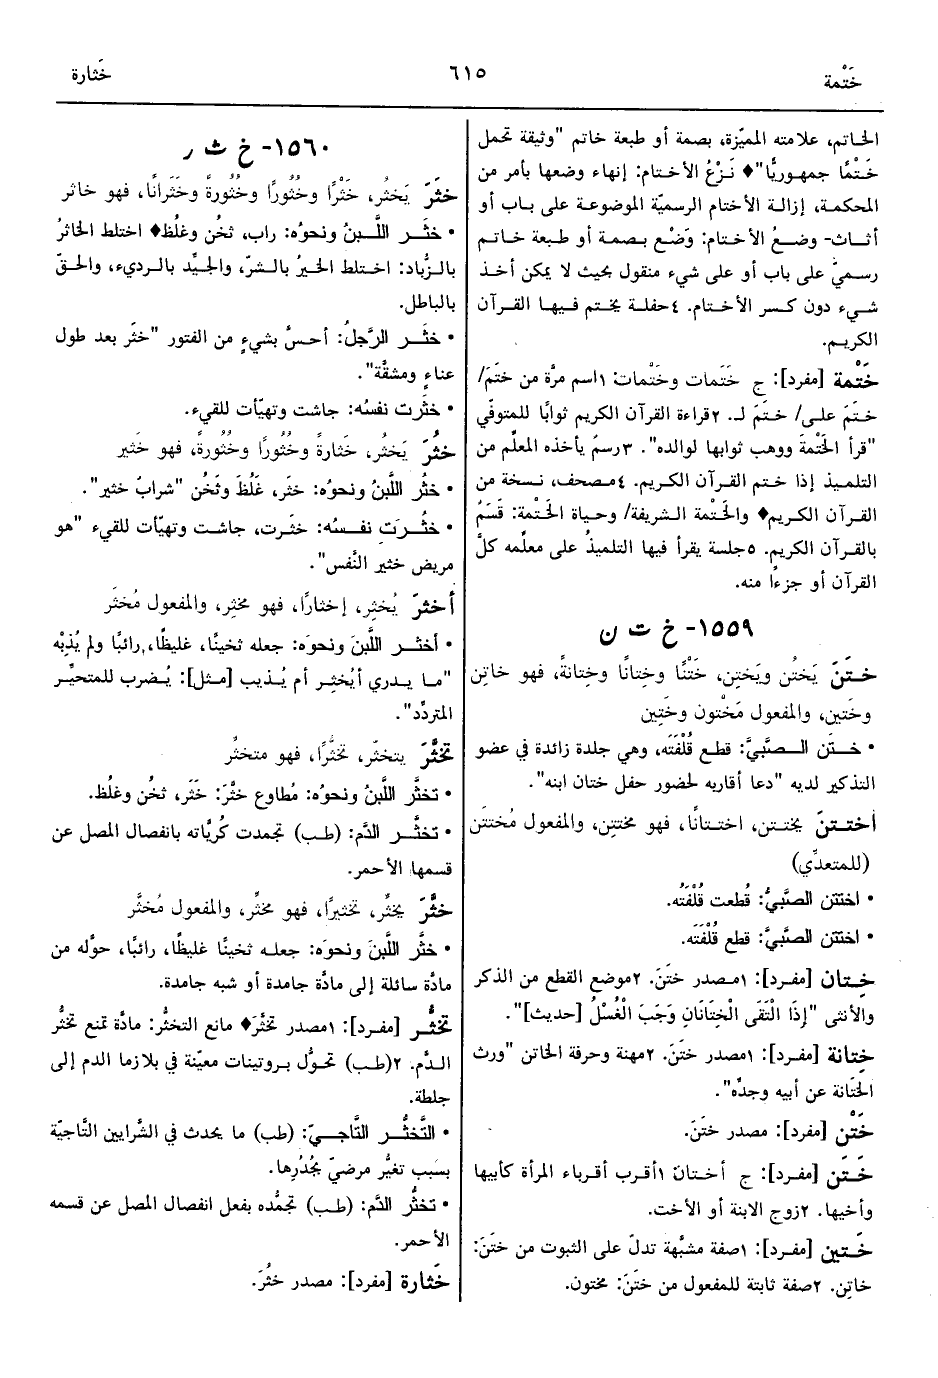 خَتْمة
٦١٥
خَثارة
الخاتم، علامته المميّزة، بصمة أو طبعة خاتم "وثيقة تحمل
خَتْمًا جمهوريًّا"♦ نَزْعُ الأختام: إنهاء وضعها بأمر من
المحكمة، إزالة الأختام الرسميّة الموضوعة على باب أو
أثاث- وضعُ الأختام: وَضْع بصمة أو طبعة خاتم
رسميّ على باب أو على شيء منقول بحيث لا يمكن أخذ
شيء دون كسر الأختام. ٤حفلة يختم فيها القرآن
الكريم.
خَتْمة [مفرد]: ج خَتَمات وخَتْمات: ١اسم مرَّة من ختَمَ/
ختَمَ على/ ختَمَ لـ. ٢قراءة القرآن الكريم ثوابًا للمتوفّي
"قرأ الخَتْمةَ ووهب ثوابها لوالده". ٣رسمٌ يأخذه المعلِّم من
التلميذ إذا ختم القرآن الكريم. ٤مصحف، نسخة من
القرآن الكريم♦ والخَتْمة الشريفة/ وحياة الخَتْمة: قَسَمٌ
بالقرآن الكريم. ٥جلسة يقرأ فيها التلميذُ على معلِّمه كلَّ
القرآن أو جزءًا منه.
١٥٥٩- خ ت ن
ختَنَ يَختُن ويَختِن، خَتْنًا وخِتانًا وخِتانةً، فهو خاتِن
وخَتين، والمفعول مَخْتون وخَتِين
• ختَن الصَّبيَّ: قطع قُلْفَتَه، وهي جلدة زائدة في عضو
التذكير لديه "دعا أقاربه لحضور حفل ختان ابنه".
اختتنَ يختتن، اختتانًا، فهو مختتِن، والمفعول مُختتَن
(للمتعدِّي)
• اختتن الصَّبيُّ: قُطعت قُلْفَتُه.
• اختتن الصَّبيَّ: قطع قُلْفَتَه.
خِتان [مفرد]: ١مصدر ختَنَ. ٢موضع القطع من الذكر
والأنثى "إِذَا الْتَقَى الْخِتَانَانِ وَجَبَ الْغُسْلُ [حديث]".
خِتانة [مفرد]: ١مصدر ختَنَ. ٢مهنة وحرفة الخاتن "ورث
الخِتَانة عن أبيه وجدِّه".
خَتْن [مفرد]: مصدر ختَنَ.
خَتَن [مفرد]: ج أختان ١أقرب أقرباء المرأة كأبيها
وأخيها. ٢زوج الابنة أو الأخت.
خَتين [مفرد]: ١صفة مشبَّهة تدلّ على الثبوت من ختَنَ:
خاتِن. ٢صفة ثابتة للمفعول من ختَنَ: مختون.
١٥٦٠- خ ث ر
خثَرَ يَخثُر، خَثْرًا وخُثُورًا وخُثُورةً وخَثَرانًا، فهو خاثر
• خثَر اللَّبنُ ونحوُه: راب، ثخُن وغلُظ♦ اختلط الخاثرُ
بالزُّباد: اختلط الخيرُ بالشرّ، والجيِّد بالرديء، والحقّ
بالباطل.
• خثَر الرَّجلُ: أحسَّ بشيءٍ من الفتور "خثَر بعد طول
عناءٍ ومشقَّة".
• خثَرت نفسُه: جاشت وتهيَّأت للقيء.
خثُرَ يَخثُر، خَثارةً وخُثُورًا وخُثُورةً، فهو خَثير
• خثُر اللَّبنُ ونحوُه: خثَر، غَلُظَ وثَخُن "شرابٌ خثير".
• خثُرَت نفسُه: خثَرت، جاشت وتهيَّأت للقيء "هو
مريض خثير النَّفس".
أخثرَ يُخثِر، إخثارًا، فهو مخثِر، والمفعول مُخثَر
• أخثر اللَّبنَ ونحوَه: جعله ثخينًا، غليظًا، رائبًا ولم يُذِبْه
"ما يدري أيُخثِر أم يُذيب [مثل]: يُضرب للمتحيِّر
المتردِّد".
تخثَّرَ يتخثّر، تخثُّرًا، فهو متخثِّر
• تخثَّر اللَّبنُ ونحوُه: مُطاوع خثَّرَ: خَثَر، ثخُن وغلُظ.
• تخثَّر الدَّم: (طب) تجمدت كُريَّاته بانفصال المصل عن
قسمها الأحمر.
خثَّرَ يخثِّر، تخثيرًا، فهو مخثِّر، والمفعول مُخثَّر
• خثَّر اللَّبنَ ونحوَه: جعله ثخينًا غليظًا، رائبًا، حوَّله من
مادَّة سائلة إلى مادَّة جامدة أو شبه جامدة.
تخثُّر [مفرد]: ١مصدر تخثَّرَ♦ مانع التخثُّر: مادَّة تمنع تخثُّر
الدَّم. ٢(طب) تحوُّل بروتينات معيّنة في بلازما الدم إلى
جلطة.
• التَّخثُّر التَّاجيّ: (طب) ما يحدث في الشرايين التَّاجيّة
بسبب تغيُّر مرضيّ بجُدُرِها.
• تخثُّر الدَّم: (طب) تجمُّده بفعل انفصال المصل عن قسمه
الأحمر.
خَثارة [مفرد]: مصدر خثُرَ.